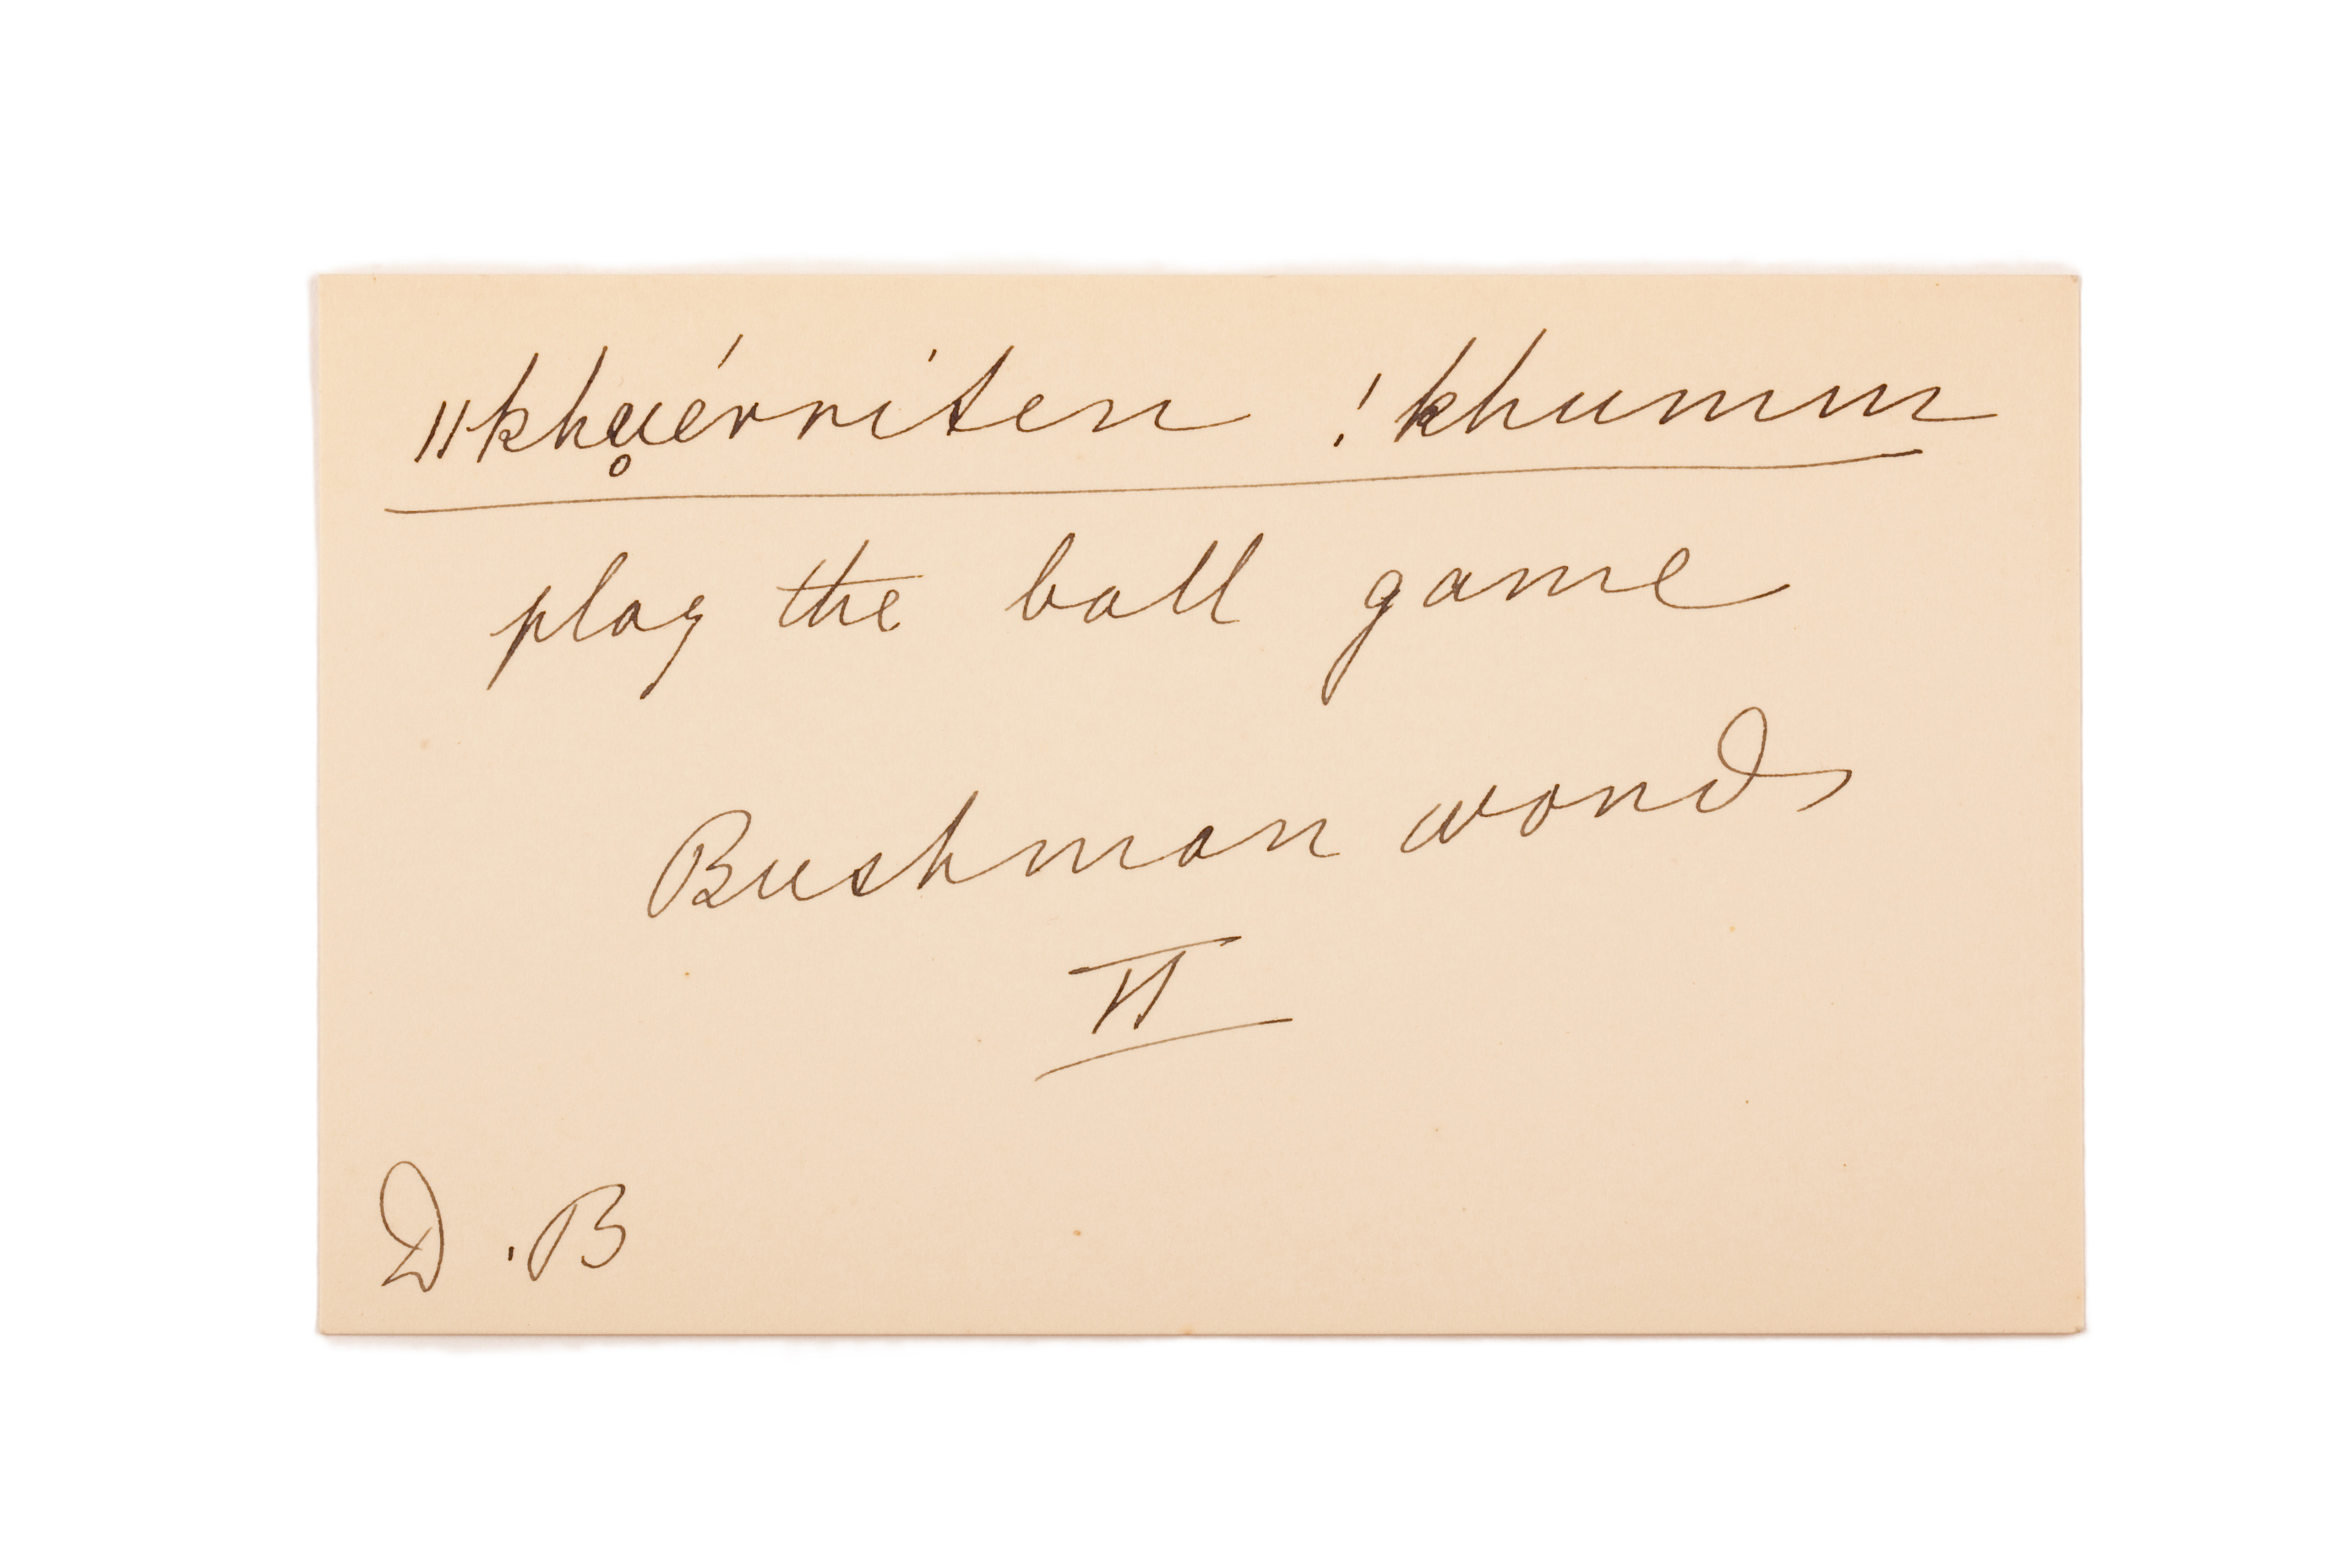 ǁkhu̥érriten !khumm
play the ball game
Bushman words
II
D.B